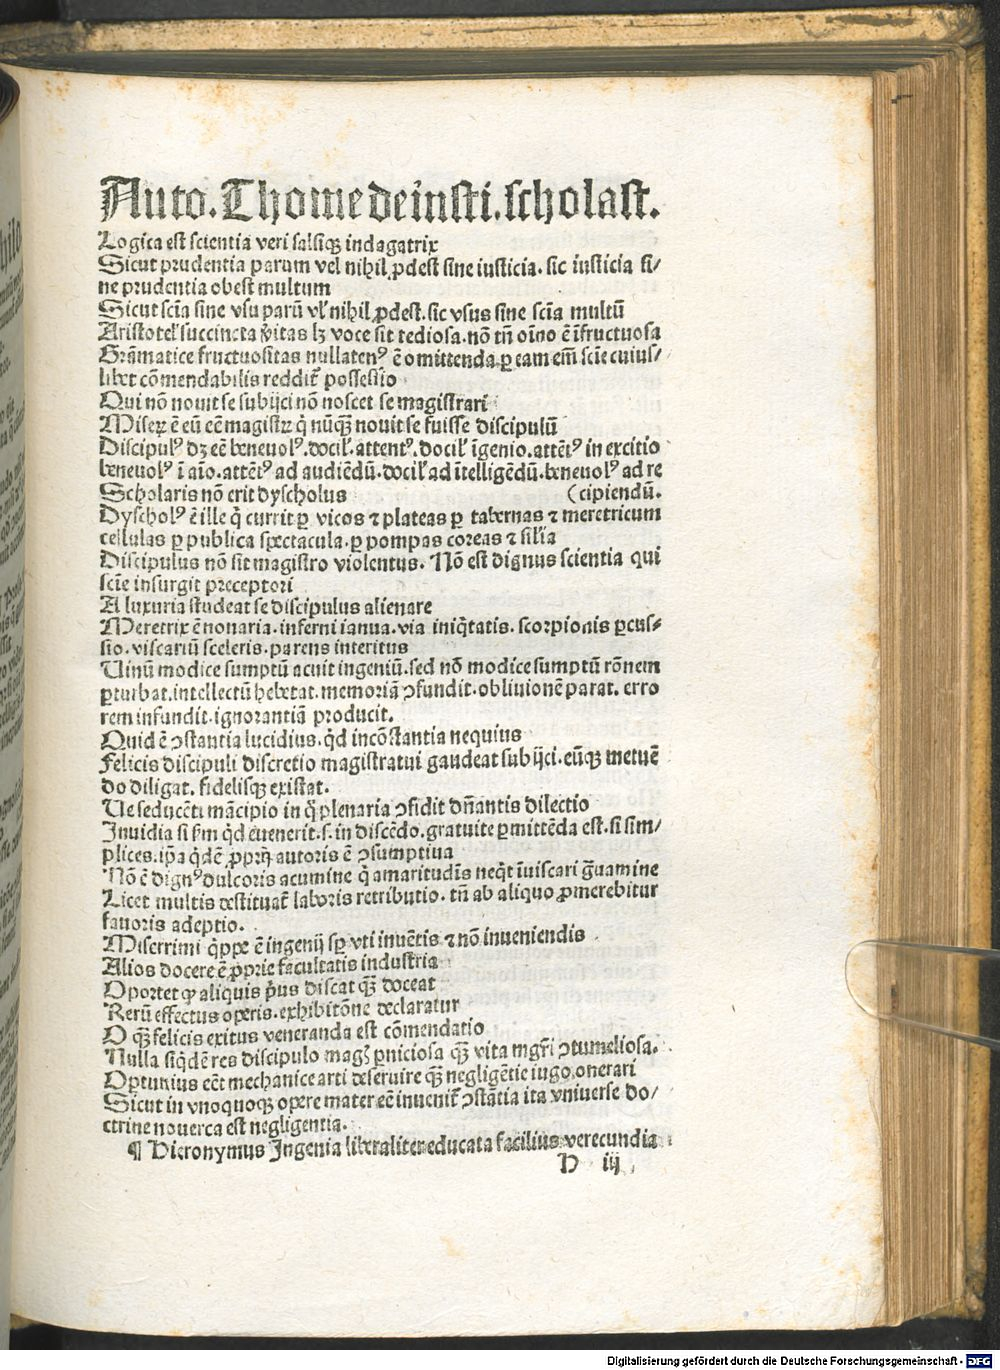 Auto. Thome de insti. scholast.
Logica est scientia veri falsiqȝ indagatrix
Sicut prudentia parum vel nihil ꝓdest sine iusticia. sic iusticia si/
ne prudentia obest multum
Sicut sciā sine vsu parū vl' nihil ꝓdest. sic vsus sine sciā multū
Aristotel' succincta v̄itas lȝ voce sit tediosa. nō tn̄ oīno ē īfructuosa
Grāmatice fructuositas nullatenꝰ ē omittenda. ꝑ eam em̄ sciē cuius/
libet cōmendabilis reddit᷑ possessio
Qui nō nouit se subijci nō noscet se magistrari
Miseꝝ ē eū eē magistꝝ q̄ nūqȝ nouit se fuisse discipulū
Discipulꝰ dȝ eē beneuolꝰ. docil'. attentꝰ. docil' īgenio. attētꝰ in exercitio
beneuolꝰ ī aīo. attētꝰ ad audiēdū. docil' ad ītelligēdū. beneuolꝰ ad re
Scholaris nō erit dyscholus (cipiendū.
Dyscholꝰ ē ille q̄ currit ꝑ vicos ⁊ plateas ꝑ tabernas ⁊ meretricum
cellulas ꝑ publica spectacula. ꝑ pompas coreas ⁊ silia
Discipulus nō sit magistro violentus. Nō est dignus scientia qui
sciē insurgit preceptori
A luxuria studeat se discipulus alienare
Meretrix ē nonaria. inferni ianua. via iniq̄tatis. scorpionis ꝑcus/
sio. viscariū sceleris. parens interitus
Uinū modice sumptū acuit ingeniū. sed nō modice sumptū rōnem
ꝑturbat. intellectū hebetat. memoriā ꝯfundit. obliuionē parat. erro
rem infundit. ignorantiā producit.
Quid ē ꝯstantia lucidius. q̄d incōstantia nequius
Felicis discipuli discretio magistratui gaudeat subijci. eūqȝ metuē
do diligat. fidelisqȝ existat.
Ue seducēti mācipio in q̄ plenaria ꝯfidit dn̄antis dilectio
Inuidia si fm q̄d euenerit. s. in discēdo. gratuite ꝑmittēda est. si sim/
plices. ip̄a q̄dē ꝓprij autoris ē ꝯsumptiua
Nō ē dignꝰ dulcoris acumine q̄ amaritudīs neq̄t īuiscari ḡuamine
Licet multis destituat᷑ laboris retributio. tn̄ ab aliquo ꝓmerebitur
fauoris adeptio.
Miserrimi q̄ppe ē ingenij sꝑ vti inuētis ⁊ nō inueniendis
Alios docere ē ꝓprie facultatis industria
Oportet ꝙ aliquis p̄us discat qȝ doceat
Rerū effectus operis. exhibitōne declaratur
O qȝ felicis exitus veneranda est cōmendatio
Nulla siq̄dē res discipulo magꝭ ꝑniciosa qȝ vita mgr̄i ꝯtumeliosa.
Oꝑtunius eēt mechanice arti deseruire qȝ negligētie iugo onerari
Sicut in vnoquoqȝ opere mater eē inuenit᷑ ꝯstātia ita vniuerse do/
ctrine nouerca est negligentia.
¶ Hieronymus Ingenia liberaliter educata facilius verecundia
D iij
Digitalisierung gefördert durch die Deutsche Forschungsgemeinschaft - DFG